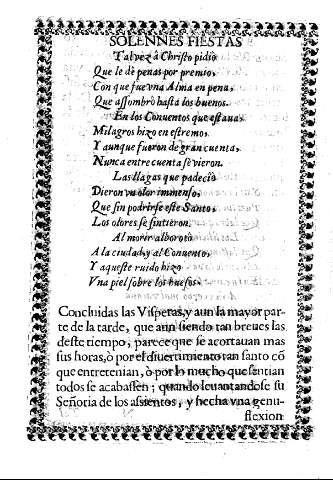 SOLENNES FIESTAS
Tal vez à Christo pidiò
Que le dè penas por premio,
Con que fue vna Alma en pena,
Que assombrò hasta los buenos.
En los Conuentos que estaua,
Milagros hizo en estremo,
Y aunque fueron de gran cuenta,
Nunca entre cuenta se vieron.
Las llagas que padeciò
Dieron vn olor immenso,
Que sin podrirse este Santo,
Los olores se sintieron.
Al morir alborotò
A la ciudad, y al Conuento,
Y aqueste ruido hizo
Vna piel sobre los huesos.
Concluidas las Visperas, y aun la mayor par-
te de la tarde, que aun siendo tan breues las
deste tiempo, parece que se acortauan mas
sus horas, ò por el diuertimento tan santo cõ
que entretenian, ò por lo mucho que sentian
todos se acabassen; quando leuantandose su
Señoria de los assientos, y hecha vna genu-
flexion